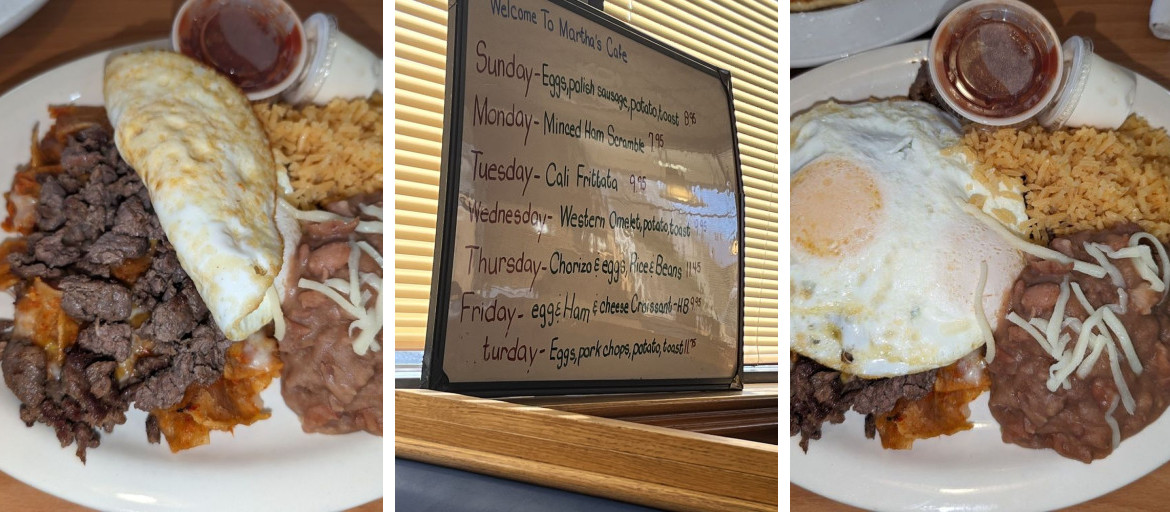 Welcome To Martha's Cafe
Sunday-Eggs,polish sausage,potato,toast 8.95
Monday-Minced Ham Scramble 7.95
Tuesday-Cali Frittata 9.95
Wednesday-Western Omelet,potato,toast 9.95
Thursday-Chorizo & eggs, Rice & Beans 11.45
Friday-egg & Ham & cheese Croissant-HB 9.95
turday-Eggs,pork chops, potato, toast